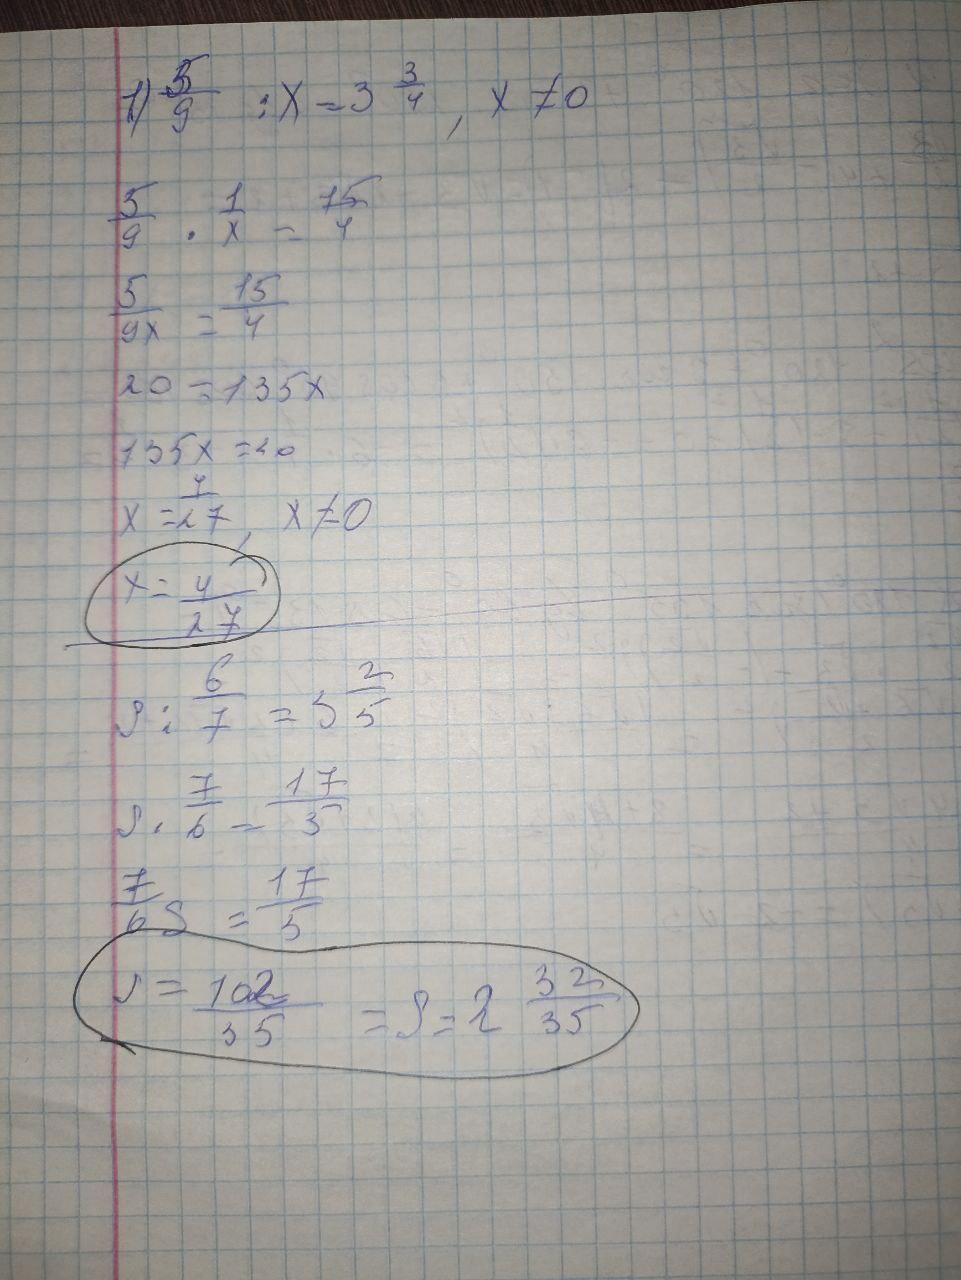 1) 5/9 : x = 3 3/4, x ≠ 0
5/9 · 1/x = 15/4
5/9x = 15/4
20 = 135x
135x = 20
x = 4/27, x ≠ 0
x = 4/27
S : 6/7 = 3 2/5
S · 7/6 = 17/5
7/6 S = 17/5
S = 102/35 = S = 2 32/35